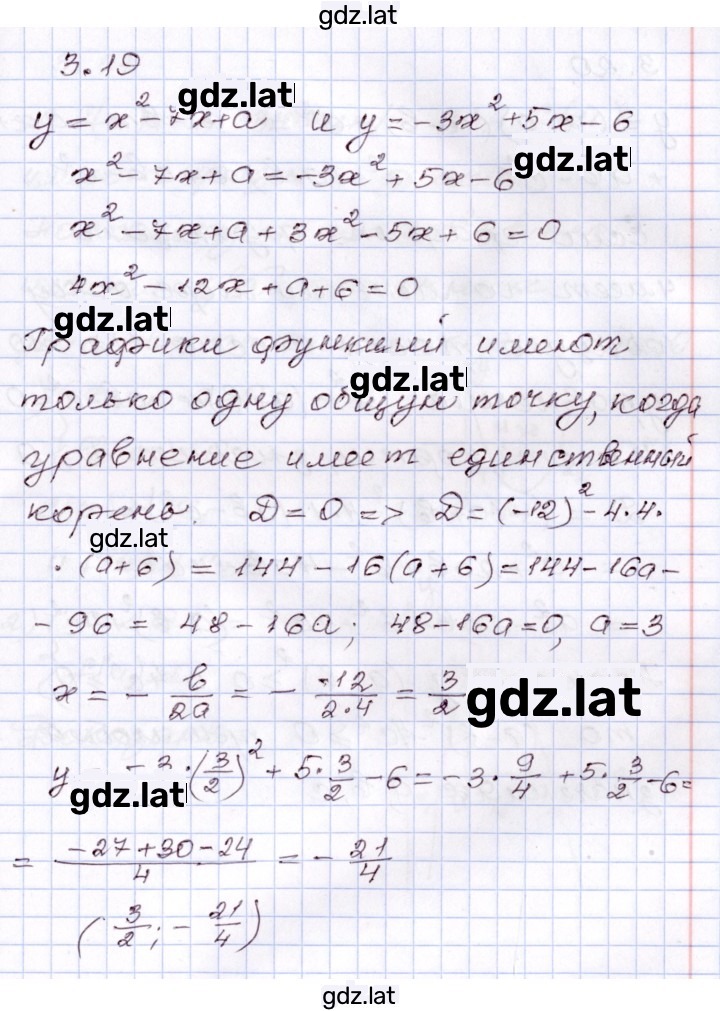 gdz.lat
3.19
gdz.lat
y = x² - 7x + a и y = -3x² + 5x - 6
gdz.lat
x² - 7x + a = -3x² + 5x - 6
x² - 7x + a + 3x² - 5x + 6 = 0
4x² - 12x + a + 6 = 0
gdz.lat
Графики функций имеют
gdz.lat
только одну общую точку, когда
уравнение имеет единственный
корень. D = 0 => D = (-12)² - 4·4·
gdz.lat
·(a+6) = 144 - 16(a+6) = 144 - 16a -
- 96 = 48 - 16a; 48 - 16a = 0, a = 3
x = - b/2a = - -12/2·4 = 3/2
gdz.lat
y -3·(3/2)² + 5·3/2 - 6 = -3·9/4 + 5·3/2 - 6 =
gdz.lat
= -27+30-24/4 = - 21/4
(3/2; - 21/4)
gdz.lat